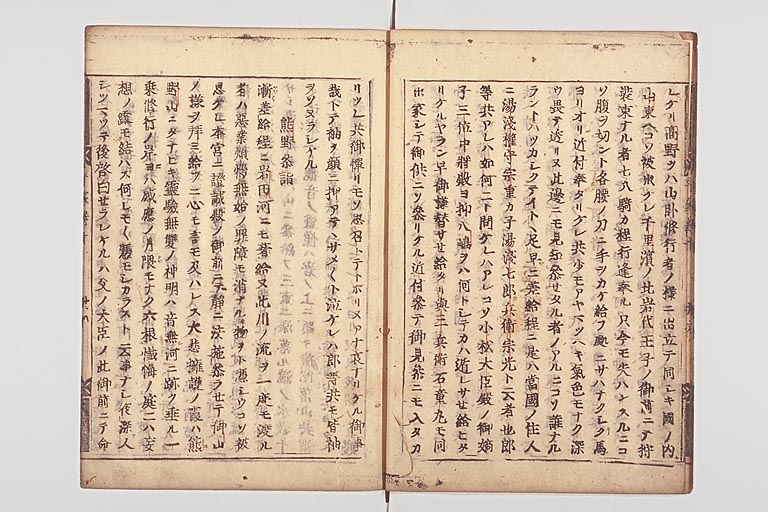 レケリ高野ヲハ山臥修行者ノ様ニ出立テ同シキ國ノ内
山東ヘコソ被出ケレ千里濱ノ北岩代王子ノ御前ニテ狩
装束ナル者七八騎カ程行逢奉ル只今モ失ハンスルニコ
ソ腹ヲ切ント各腰ノ刀ニ手ヲカケ給フ處ニサハナクシテ馬
ヨリオリ近付奉タリケレ共少モアヤマツヘキ氣色モナク深
ウ畏テ透リヌ此邊ニモ見知参セタル者ノアルニコソ誰ナル
ラントハツカシクテイトヽ足早ニ差給程ニ是ハ當國ノ住人
ニ湯淺權守宗重カ子湯淺七郎兵衛宗光ト云者也郎
等共アレハ如何ニト問ケレハアレコソ小松大臣殿ノ御嫡
子三位中将殿ヨ抑八嶋ヲハ何トシテカハ遁レサセ給ヒタ
リケルヤラン早御様替サセ給タリ與三兵衛石童丸モ同
出家シテ御供ニソ参リケル近付参テ御見参ニモ入タカ
リツレ共御憚リモソ思召トテトホリヌアナ哀ナリケル御事
哉トテ袖ヲ顔ニ押アテヽサメ〳〵ト泣ケレハ郎等共モ皆袖
ヲソヌラシケル
熊野参詣
漸差給程ニ岩田河ニモ着給ヌ此川ノ流ヲ一度モ渡ル
者ハ惡業煩悩無始ノ罪障モ消ナル物ヲト憑シウコソ被
思ケレ本宮ニ證誠殿ノ御前ニテ静ニ法施参ラセテ御山
ノ様ヲ拜ミ給フニ心モ言モ及ハレス大悲擁護ノ霞ハ熊
野山ニタナヒキ靈驗無雙ノ神明ハ音無河ニ跡ヲ垂ル一
乗修行ノ岸ニハ感應ノ月隈モナク六根懺悔ノ庭ニハ妄
想ノ露モ結ハス何レモ〳〵憑モシカラスト云事ナシ夜深人
シツマツテ後啓白セラレケルハ父ノ大臣ノ此御前ニテ命